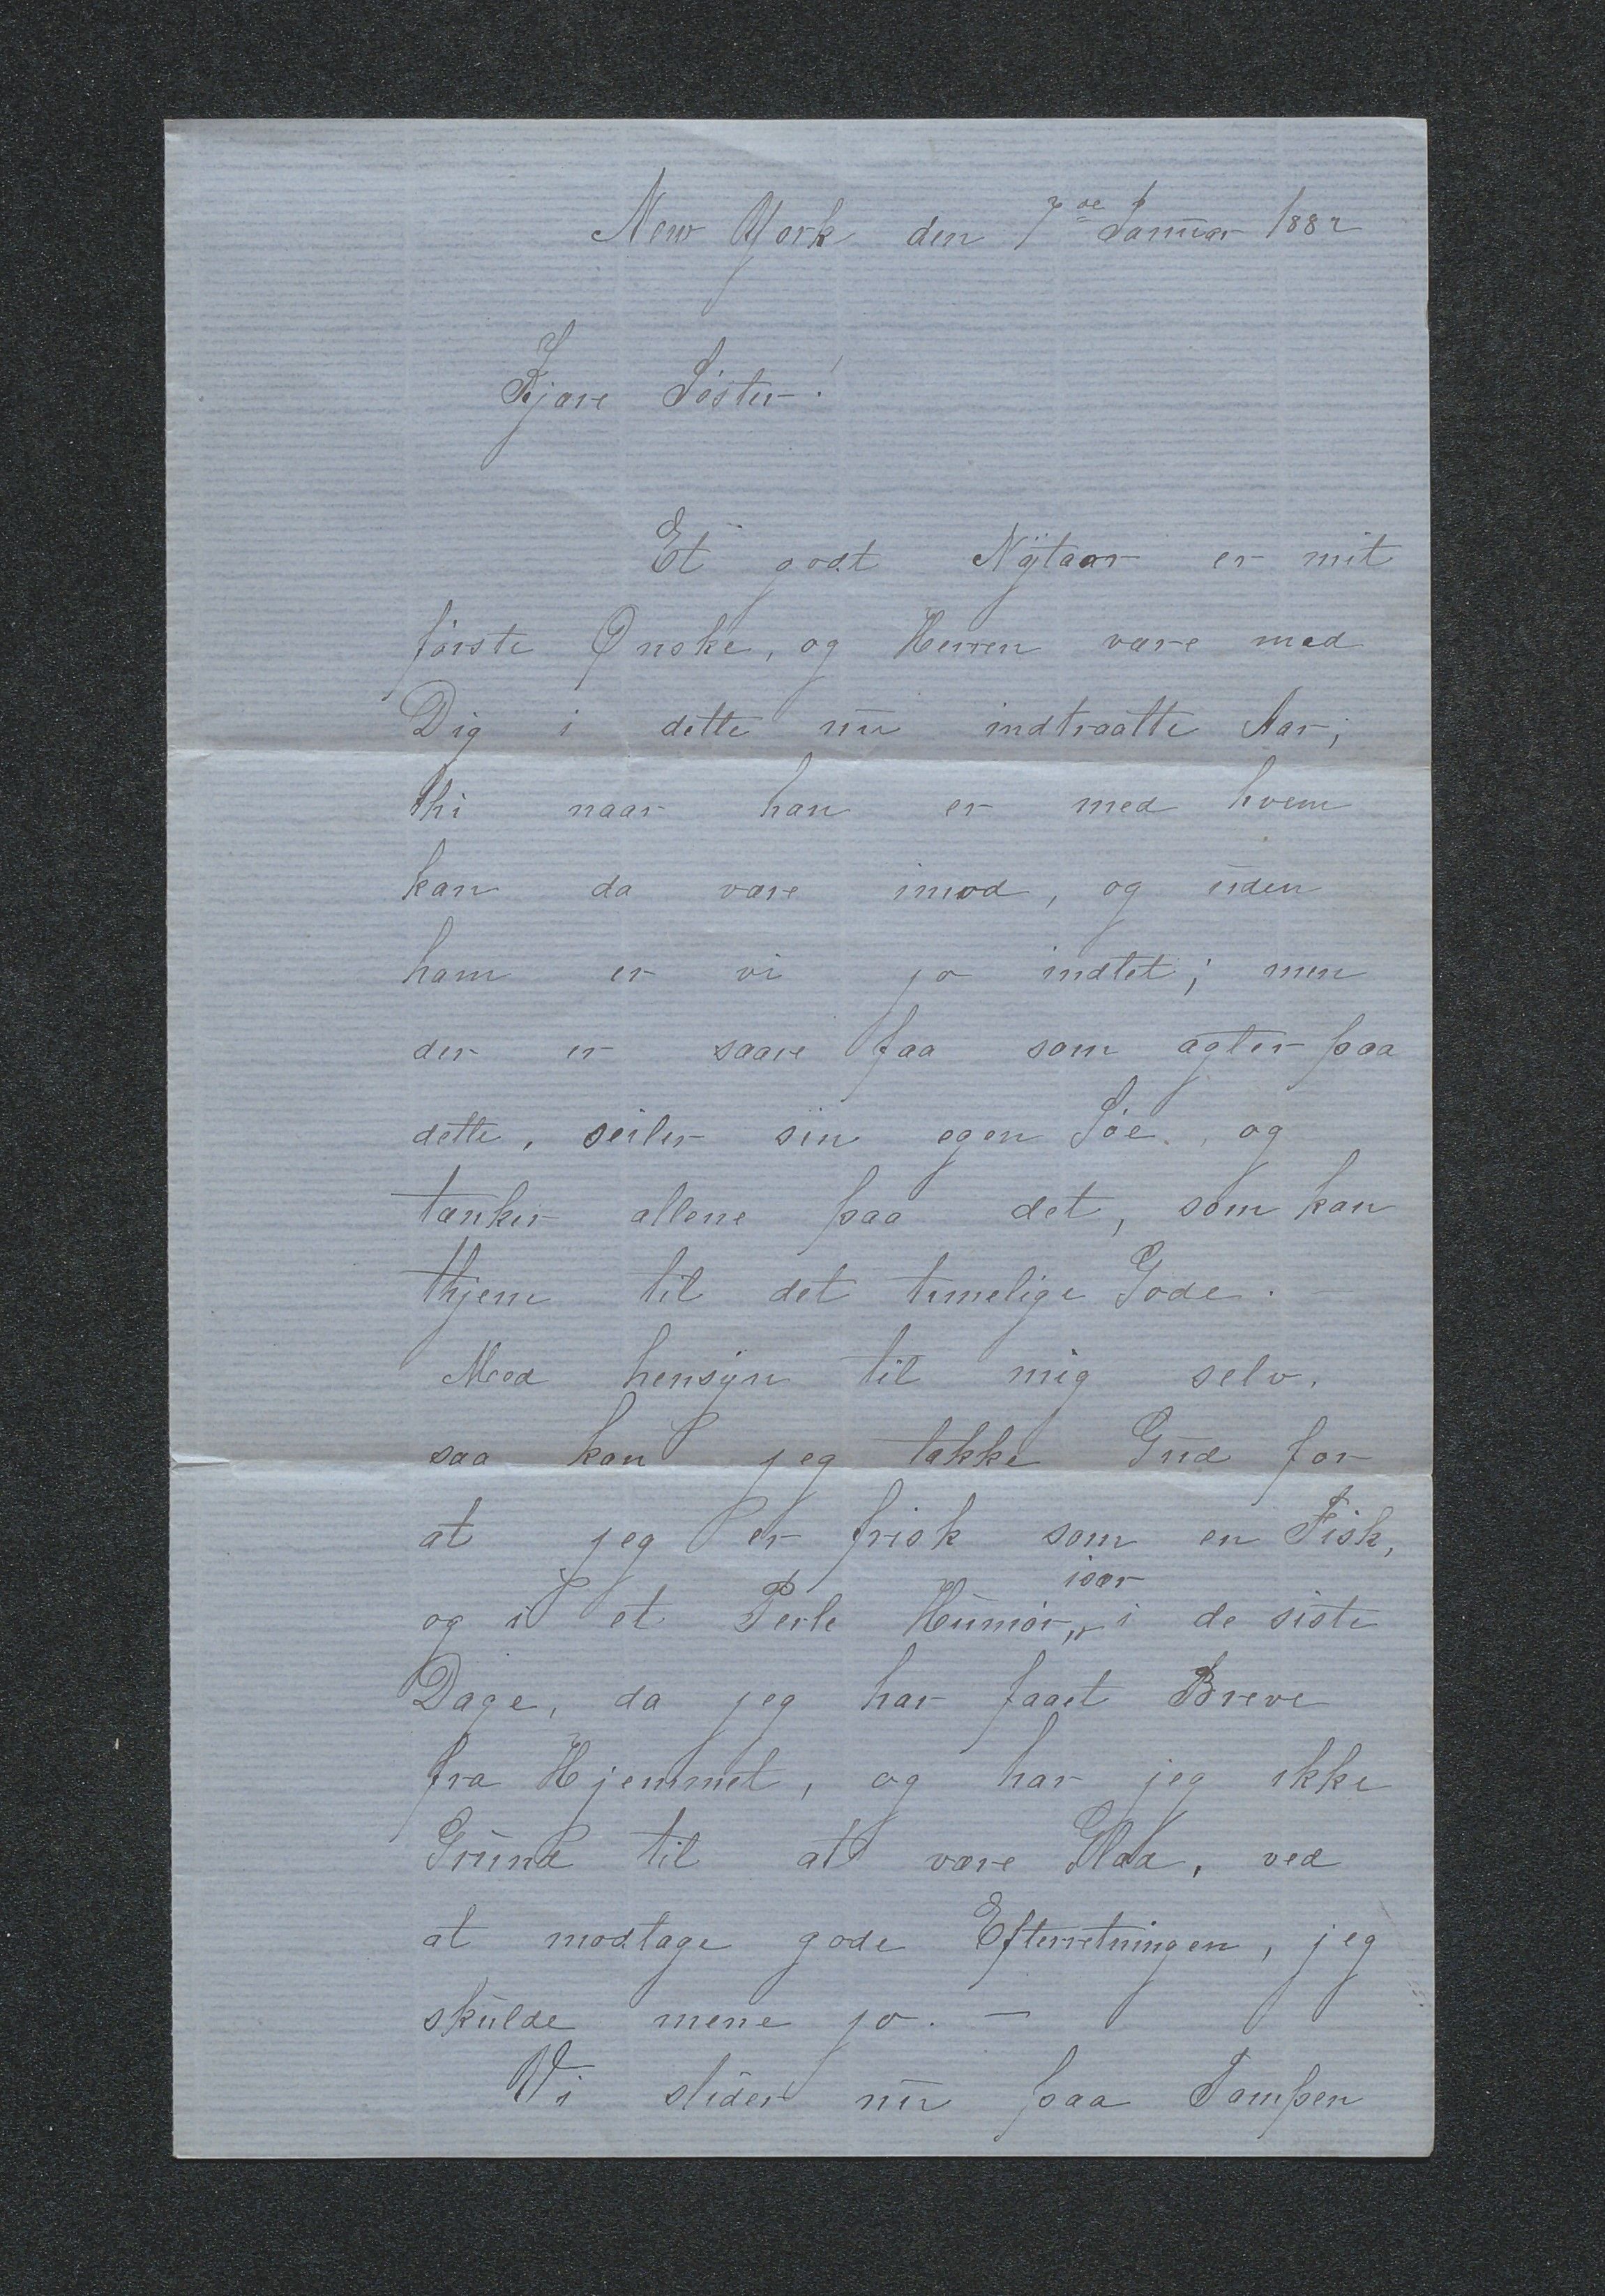 New York den 7de Januar 1882
Kjære Søster!
Et godt Nÿtaar er mit
første Ønske, og Herren være med
Dig i dette nu indtraatte Aar;
thi naar han er med hvem
kan da være imod, og uden
ham er vi jo indtet; men
der er saare faa som agter paa
dette, seiler sin egen Søe, og
tænker allene paa det, som kan
thjene til det timelige Gode. —
Med hensÿn til mig selv,
saa kan jeg takke Gud for
at jeg er frisk som en Fisk,
især
og i et Perle Humør, i de siste
Dage, da jeg har faaet Breve
fra Hjemmet, og har jeg ikke
Grund til at være Glad, ved
at modtage gode Efterretningen, jeg
skulde mene jo. —
Vi slider nu paa Tampen